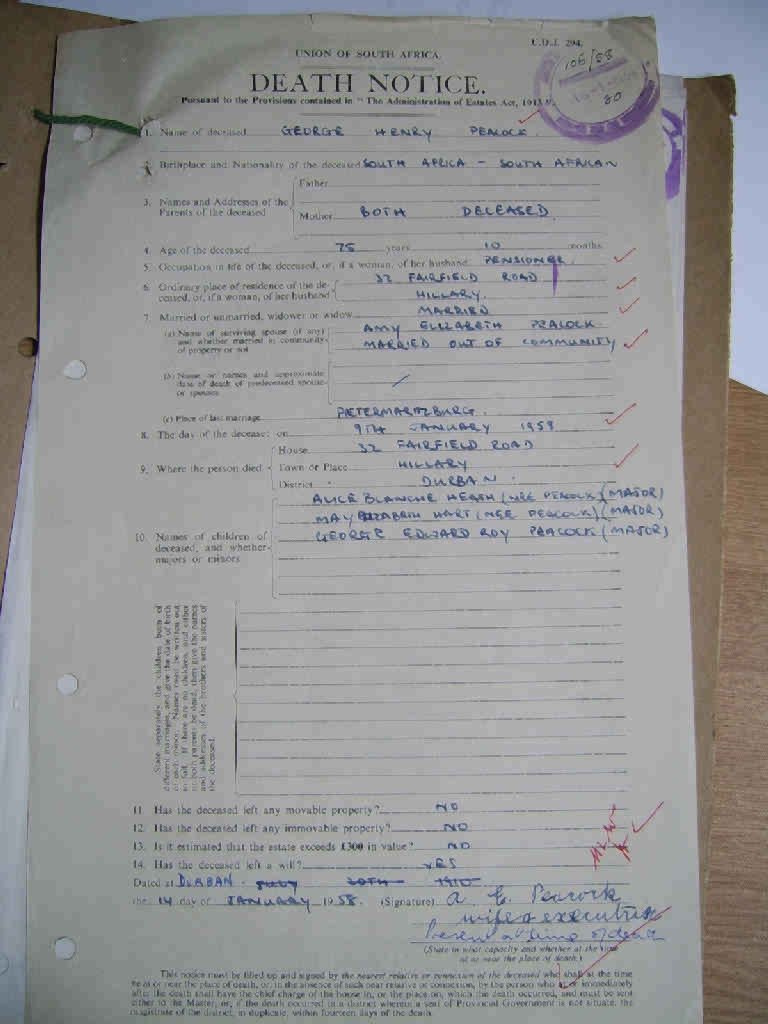 U.D.J. 294.
UNION OF SOUTH AFRICA.
106/58
DEATH NOTICE.
80
Pursuant to the Provisions contained in "The Administration of Estates Act, 1913".
1. Name of deceased GEORGE HENRY PEACOCK.
2. Birthplace and Nationality of the deceased SOUTH AFRICA - SOUTH AFRICAN
3. Names and Addresses of the Parents of the deceased
Father
Mother BOTH DECEASED
4. Age of the deceased 75 years 10 months
5. Occupation in life of the deceased, or, if a woman, of her husband PENSIONER.
6. Ordinary place of residence of the deceased, or, if a woman, of her husband
32 FAIRFIELD ROAD
HILLARY.
7. Married or unmarried, widower or widow MARRIED
(a) Name of surviving spouse (if any) and whether married in community of property or not
AMY ELIZABETH PEACOCK
MARRIED OUT OF COMMUNITY
(b) Name or names and approximate date of death of predeceased spouse or spouses
(c) Place of last marriage PIETERMARITZBURG.
8. The day of the decease: on 9TH JANUARY 1958
9. Where the person died
House 32 FAIRFIELD ROAD
Town or Place HILLARY
District DURBAN.
10. Names of children of deceased, and whether majors or minors
ALICE BLANCHE HEATH (NEE PEACOCK) (MAJOR)
MAY ELIZABETH HART (NEE PEACOCK) (MAJOR)
GEORGE EDWARD ROY PEACOCK (MAJOR)
State separately, the children born of
different marriages, and give the date of birth
of each minor. Names must be written out
in full. If there are no children, and either
or both parents be dead, then give the names
and addresses of the brothers and sisters of
the deceased.
11. Has the deceased left any movable property? NO
12. Has the deceased left any immovable property? NO
13. Is it estimated that the estate exceeds £300 in value? NO
14. Has the deceased left a will? YES
Dated at DURBAN. JULY 20TH 1910
the 14 day of JANUARY 1958. (Signature) A. E. Peacock
wife & executrix
Present at time of death
(State in what capacity and whether at the time
at or near the place of death.)
This notice must be filled up and signed by the nearest relative or connexion of the deceased who shall at the time
be at or near the place of death, or, in the absence of such near relative or connexion, by the person who at or immediately
after the death shall have the chief charge of the house in, or the place on, which the death occurred, and must be sent
either to the Master, or, if the death occurred in a district wherein a seat of Provincial Government is not situate, the
magistrate of the district, in duplicate, within fourteen days of the death.